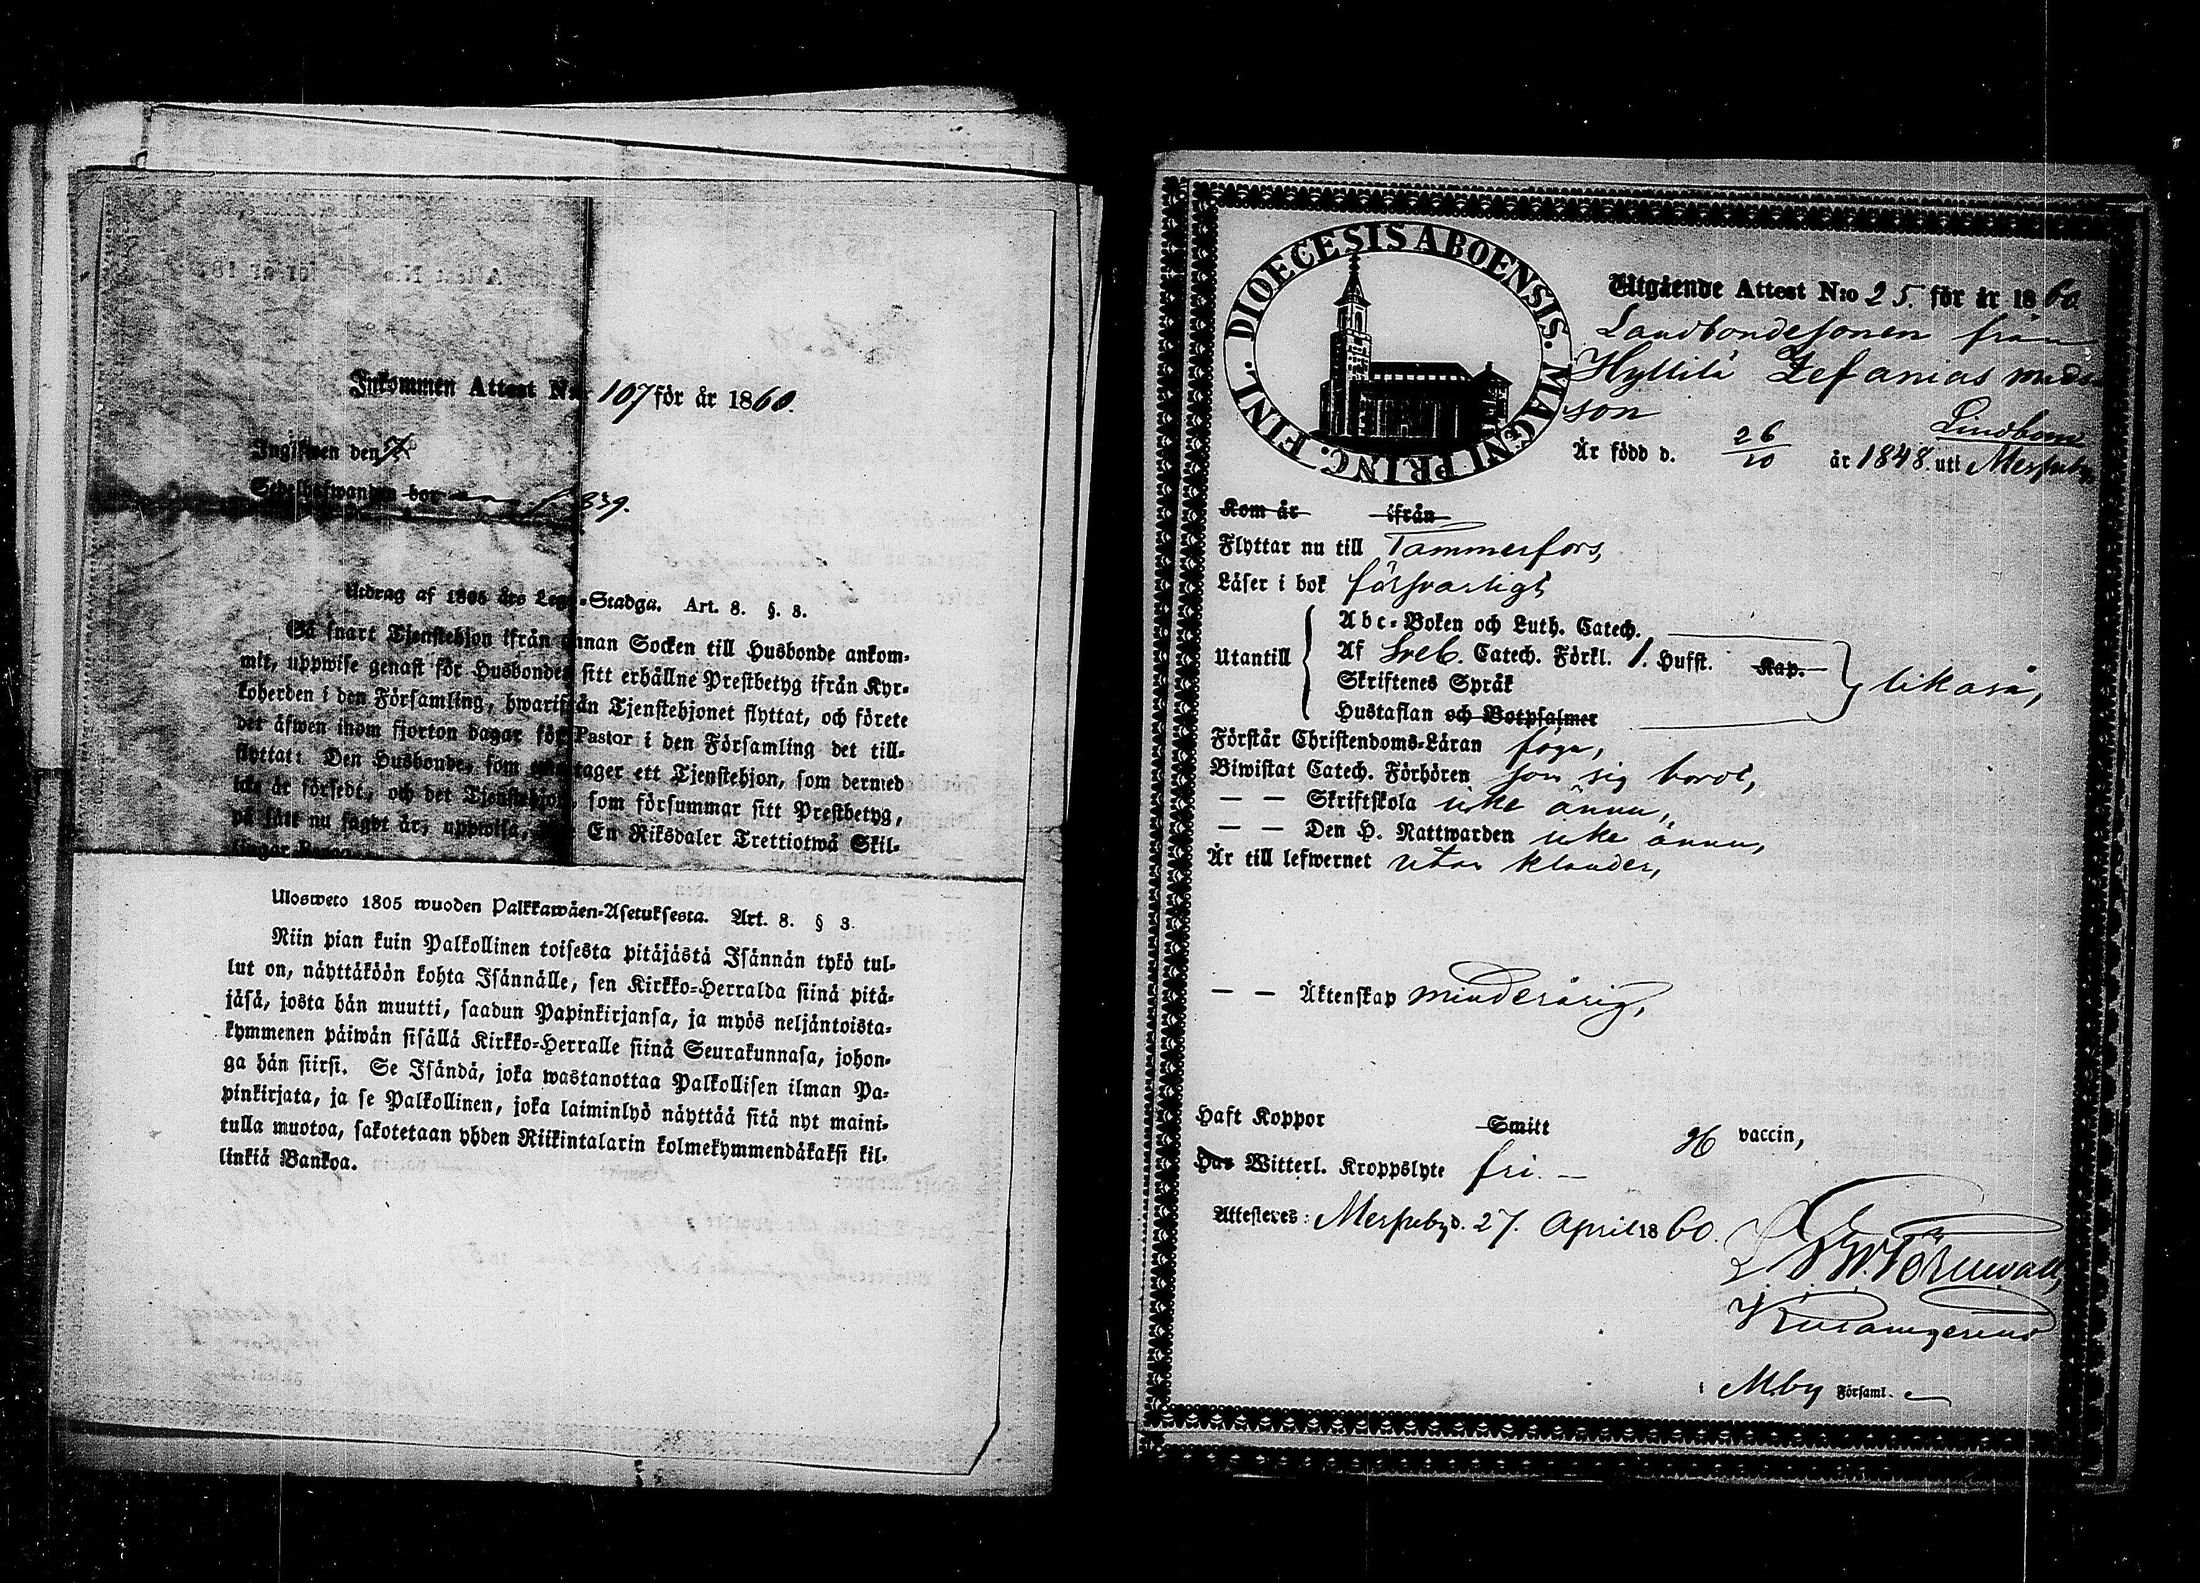 Inkommen Attest N:o 107 för år 1860.
Ingifwen den
Sedelhafwanden bor 839.
Utdrag af 1805 års Lego-Stadga. Art. 8. §. 3.
Så snart Tjenstehjon ifrån annan Socken till Husbonde ankom-
mit, uppwise genast för Husbonden sitt erhållne Prestbetyg ifrån Kyr-
koherden i den Församling, hwarifrån Tjenstehjonet flyttat, och förete
det äfwen inom fjorton dagar för Pastor i den Församling det till-
flyttat: Den Husbonde, som emottager ett Tjenstehjon, som dermed
icke är försedt, och det Tjenstehjon, som försummar sitt Prestbetyg,
på sätt nu sagdt är, uppwisa, En Riksdaler Trettiotwå Skil-
lingar Banco.
Ulosweto 1805 wuoden Palkkawäen-Asetuksesta. Art. 8. § 3.
Niin pian kuin Palkollinen toisesta pitäjästä Isännän tykö tul-
lut on, näyttäköön kohta Isännälle, sen Kirkko-Herralda siinä pitä-
jäsä, josta hän muutti, saadun Papinkirjansa, ja myös neljäntoista-
kymmenen päiwän sisällä Kirkko-Herralle siinä Seurakunnasa, johon-
ga hän siirsi. Se Isändä, joka wastanottaa Palkollisen ilman Pa-
pinkirjata, ja se Palkollinen, joka laiminlyö näyttää sitä nyt maini-
tulla muotoa, sakotetaan yhden Riikintalarin kolmekymmendäkaksi kil-
linkiä Bankoa.
DIOECESIS ABOENSIS. MAGNI PRINC. FINL.
Utgående Attest N:o 25. för år 1860
Landbondesonen från
Hyllilä Zefanias Mads
son
Lindbom
Är född d. 26/10 år 1848. uti Messuby,
Kom år ifrån
Flyttar nu till Tammerfors,
Läser i bok försvarligt
Utantill
Abc-Boken och Luth. Catech.
Af Sveb. Catech. Förkl. 1. Hufst. Kap.
Skriftenes Språk
Hustaflan och Botpsalmer
likaså,
Förstår Christendoms-Läran föga,
Biwistat Catech. Förhören som sig bordt,
— — Skriftskola icke ännu,
— — Den H. Nattwarden icke ännu,
Är till lefwernet utan klander,
— — Äktenskap minderårig,
Haft Koppor Smitt vaccin,
Har Witterl. Kroppslyte fri. —
Attesteres: Messuby d. 27. April 1860.
Törnwall,
i M:by Församl.